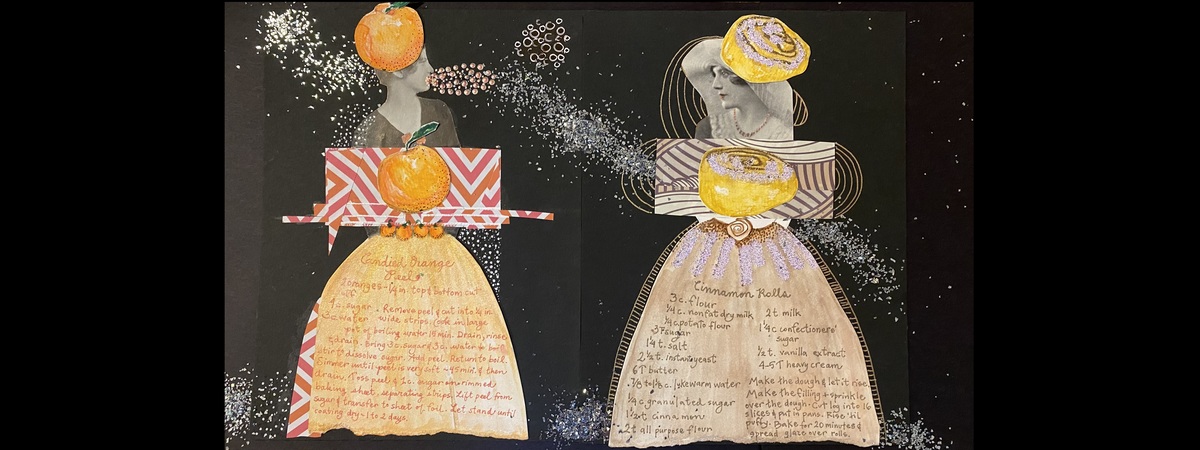 Candied Orange
Peels
2 oranges - 1/4 in. top & bottom cut
off
4 c. sugar. Remove peel & cut into 1/4 in
3 c. water wide strips. Cook in large
pot of boiling water 15 min. Drain, rinse
& drain. bring 3c. sugar & 3c. water to boil
stir to dissolve sugar. Add peel. Return to boil
Simmer until peel is very soft ~ 45 min. & then
drain. Toss peel & 1 c. sugar on rimmed
baking sheet, separating strips. Lift peel from
sugar & transfer to sheet of foil. Let stand until
coating dry - 1 to 2 days.
Cinnamon Rolls
3 c. flour
1/4 c. nonfat dry milk
1/4 c. potato flour
3T sugar
1 1/4 t. salt
2 1/2 t. instant yeast
6T butter
lukewarm water
1/4 c. granulated sugar
1 1/2 t cinnamon
2t all purpose flour
2 t milk
1 1/4 c confectioners'
sugar
1/2 t. vanilla extract
4-5 T heavy cream
Make the dough & let it rise.
Make the filling & sprinkle
over the dough. Cut log into 16
slices & put in pans. Rise 'til
puffy. Bake for 20 minutes &
spread glaze over rolls.